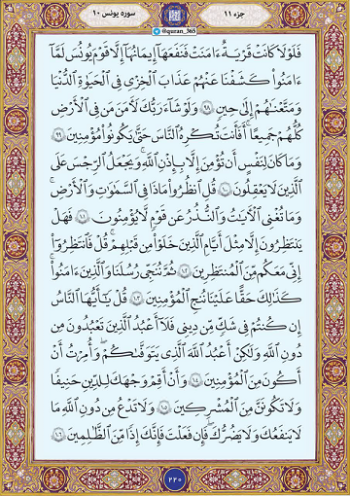 جزء ۱۱
سوره یونس ۱۰
@quran_365
فَلَوْلَا كَانَتْ قَرْيَةٌ ءَامَنَتْ فَنَفَعَهَآ إِيمَٰنُهَآ إِلَّا قَوْمَ يُونُسَ لَمَّآ
ءَامَنُوا۟ كَشَفْنَا عَنْهُمْ عَذَابَ ٱلْخِزْىِ فِى ٱلْحَيَوٰةِ ٱلدُّنْيَا
وَمَتَّعْنَٰهُمْ إِلَىٰ حِينٍ ۝٩٨ وَلَوْ شَآءَ رَبُّكَ لَءَامَنَ مَن فِى ٱلْأَرْضِ
كُلُّهُمْ جَمِيعًا ۚ أَفَأَنتَ تُكْرِهُ ٱلنَّاسَ حَتَّىٰ يَكُونُوا۟ مُؤْمِنِينَ ۝٩٩
وَمَا كَانَ لِنَفْسٍ أَن تُؤْمِنَ إِلَّا بِإِذْنِ ٱللَّهِ ۚ وَيَجْعَلُ ٱلرِّجْسَ عَلَى
ٱلَّذِينَ لَا يَعْقِلُونَ ۝١٠٠ قُلِ ٱنظُرُوا۟ مَاذَا فِى ٱلسَّمَٰوَٰتِ وَٱلْأَرْضِ ۚ
وَمَا تُغْنِى ٱلْءَايَٰتُ وَٱلنُّذُرُ عَن قَوْمٍ لَّا يُؤْمِنُونَ ۝١٠١ فَهَلْ
يَنتَظِرُونَ إِلَّا مِثْلَ أَيَّامِ ٱلَّذِينَ خَلَوْا۟ مِن قَبْلِهِمْ ۚ قُلْ فَٱنتَظِرُوٓا۟
إِنِّى مَعَكُم مِّنَ ٱلْمُنتَظِرِينَ ۝١٠٢ ثُمَّ نُنَجِّى رُسُلَنَا وَٱلَّذِينَ ءَامَنُوا۟ ۚ
كَذَٰلِكَ حَقًّا عَلَيْنَا نُنجِ ٱلْمُؤْمِنِينَ ۝١٠٣ قُلْ يَٰٓأَيُّهَا ٱلنَّاسُ
إِن كُنتُمْ فِى شَكٍّ مِّن دِينِى فَلَآ أَعْبُدُ ٱلَّذِينَ تَعْبُدُونَ مِن
دُونِ ٱللَّهِ وَلَٰكِنْ أَعْبُدُ ٱللَّهَ ٱلَّذِى يَتَوَفَّىٰكُمْ ۖ وَأُمِرْتُ أَنْ
أَكُونَ مِنَ ٱلْمُؤْمِنِينَ ۝١٠٤ وَأَنْ أَقِمْ وَجْهَكَ لِلدِّينِ حَنِيفًا
وَلَا تَكُونَنَّ مِنَ ٱلْمُشْرِكِينَ ۝١٠٥ وَلَا تَدْعُ مِن دُونِ ٱللَّهِ مَا
لَا يَنفَعُكَ وَلَا يَضُرُّكَ ۖ فَإِن فَعَلْتَ فَإِنَّكَ إِذًا مِّنَ ٱلظَّٰلِمِينَ ۝١٠٦
۲۲۰